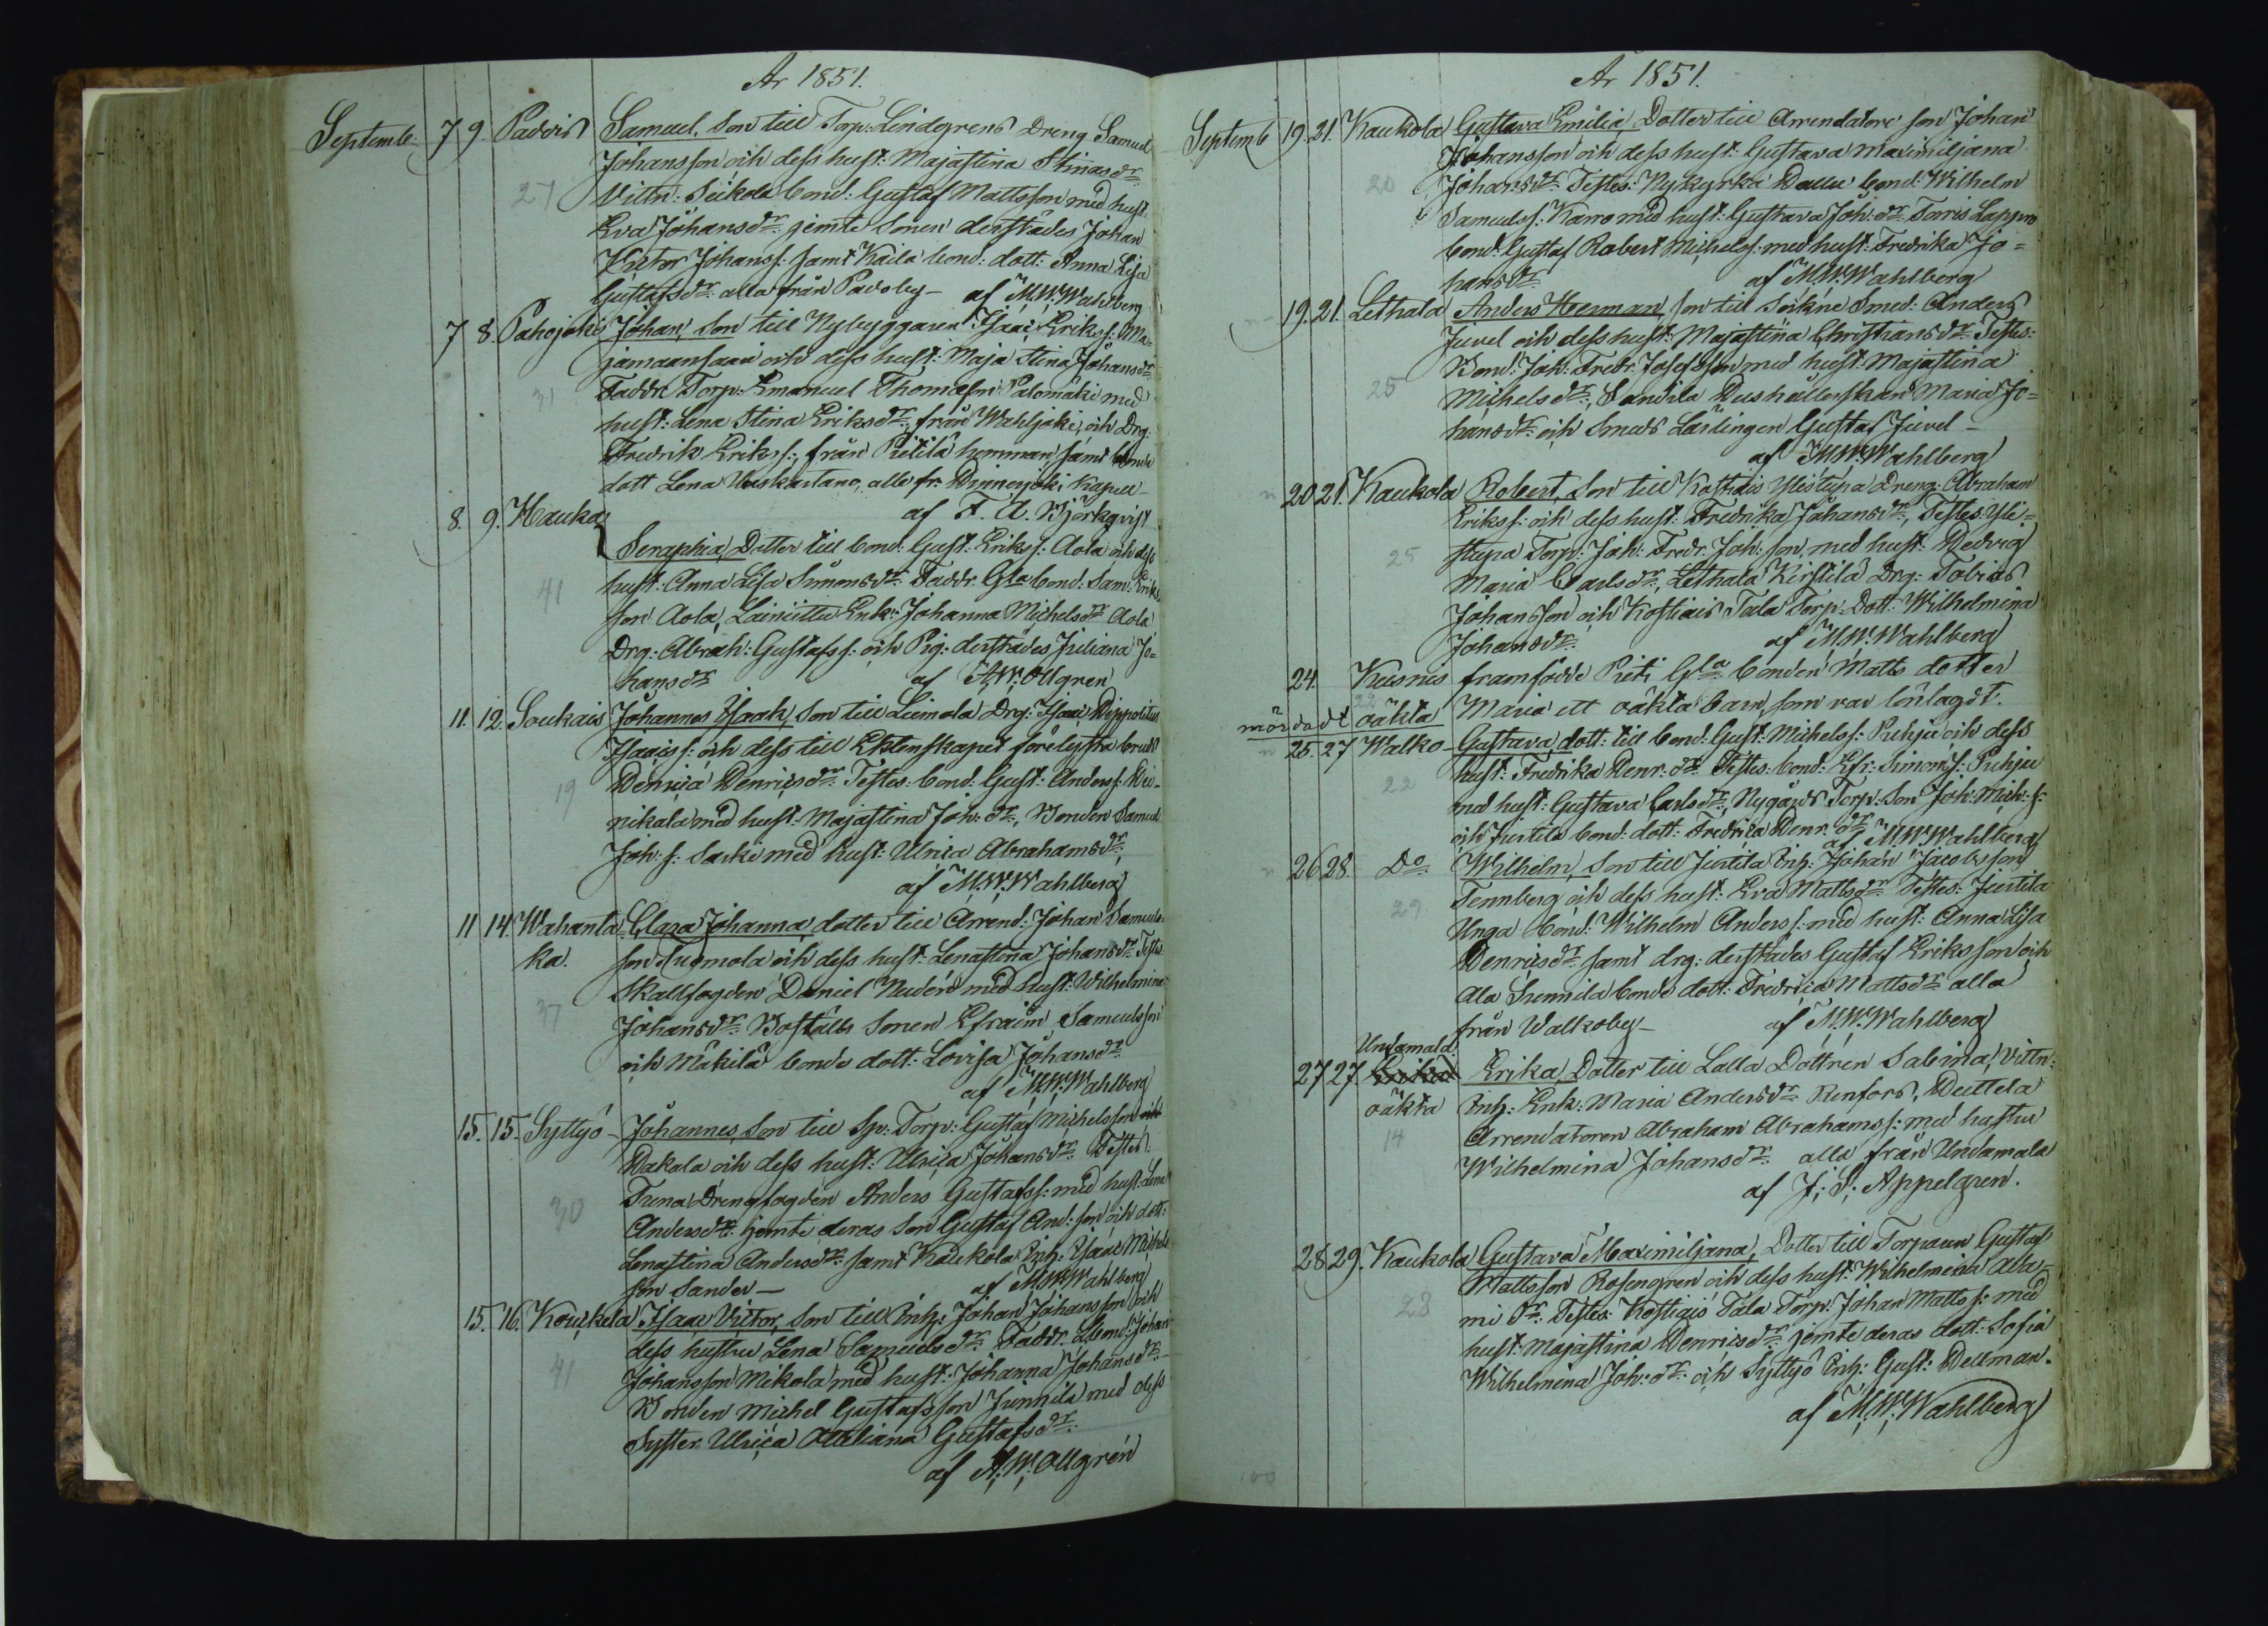 År 1851.
Septemb. 7 9. Padois Samuel, Son till Torp: Lindgrens Dreng Samuel
Johansson och dess hust: Majastina Stinasdr
27 Vittn: Seikola bond: Gustaf Mattsson med hust:
Eva Johansdr jemte sonen derstädes Johan
Victor Johanss: samt Kaila bond: dott: Anna Lisa
Gustafsdr alla från Padoby – af M.W. Wahlberg
7 8. Pahojoki Johan, Son till Nybyggaren Isaac Erikss: Ma-
jamaansaari och dess hust: Maja Stina Johansdr
31 Faddr Torp: Emanuel Thomasson Palomäki med
hust: Lena Stina Eriksdr, från Wahljoki, och Drg.
Fredrik Erikss:, från Pietilä hemman samt bonde
dott Lena Uuskartano, alle fr. Hinnerjoki Kapell –
af F. A. Björkqvist
8. 9. Hauka Seraphia, Dotter till bond: Gust: Erikss: Aola och dess
41 hust: Anna Lisa Simonsdr Faddr. Gla bond: Sam: Eriks
son Aola, Enk: Johanna Michelsdr Aola
Drg: Abrah: Gustafss: och Pig: derstädes Juliana Jo=
hansdr af A.W. Allgren
11. 12. Soukais Johannes Isaak, Son till Liimola Drg: Isaac Hippolitus
Isacss: och dess till Ektenskapet förelystra brud
19 Henrica Henricsdr Testes: bond: Gust: Anderss: Hei-
nikala med hust: Majastina Joh: dr, Bonden Samuel
Joh: s: Sarki med hust: Ulrica Abrahamsdr,
af M.W. Wahlberg
11 14. Wahanta= Clara Johanna dotter till Arrend: Johan Samuels=
ka. son och dess hust: Lenastina Johansdr Testes
37 Skallfogden Daniel Nudén med hust: Wilhelmina
Johansdr Boställs Sonen Efraim Samuelsson
och Mäkilä bonde dott: Lovisa Johansdr
af M.W. Wahlberg
15. 15. Syttyö – Johannes, Son till Sp: Torp: Gustaf Michelsson
Hakala och dess hust: Ulrica Johansdr Testes:
30 Tuna Drengfogden Anders Gustafss: med hust: Lena
Andersdr jemte deras Son Gustaf And: son och dott:
Lenastina Andersdr samt Kaukola Inh: Isaac Michels
son Sander – af M.W. Wahlberg
15. 16. Kouckela Isaac Victor, Son till Inh: Johan Johansson och
41 dess hustru Lena Samuelsdr Faddr. Lbond: Johan
Johansson Mikola med hust: Johanna Johansdr –
Bonden Michel Gustafsson Junnila med dess
Syster Ulrica Gustafsdr
af A.W. Allgrén
År 1851.
Septemb 19. 21. Kaukola Gustava Emilia, Dotter till Arrendatore son Johan
Johansson och dess hust: Gustava Maximiljana
20 Johansdr Testes: Nykyrka bond: Wilhelm
Samuelss: Karro med hust: Gustava Joh: dr Torris Lappro
bond: Gustaf Robert Michelss: med hust: Fredrika Jo=
hansdr af M.W. Wahlberg
19. 21. Lethala Anders Herman, son till Sockne Smed: Anders
Juvel och dess hust: Majastina Christiansdr Testes:
25 Bond: Joh: Fredr: Josefsson med hust: Majastina
Michelsdr, Sandila Hushållerskan Maria Jo=
hansdr och Smeds Lärlingen Gustaf Juvel –
af M.W. Wahlberg
20 21. Kaukola Robert, Son till Kostiais Ylistupa Dreng: Abraham
Erikss: och dess hust: Fredrika Johansdr, Testes: Yli=
25 stupa Torp: Joh: Fredr. Joh: son, med hust: Hedvig
Maria Carlsdr, Lethala Kirstilä Drg: Tobias
Johansson och Kostiais Tala Torp: Dott: Wilhelmina
Johansdr af M.W. Wahlberg
24. Kusnis framfödde Pieti Gla bonden Matts dotter
22 mördadt oäkta Maria ett oäkta barn, som var lönlagdt.
25. 27 Walko – Gustava, dott: till bond: Gust: Michelss: Puhju och dess
22 hust: Fredrika Henr: dr Testes: bond: Efr: Simonss: Puhju
med hust: Gustava Carlsdr, Nygårds Torp: Son Joh: Mich: s:
och Juntila bond: dott: Fredrica Henr: dr af M.W. Wahlberg
26 28. Do Wilhelm, Son till Juntila Inh: Johan Jacobsson
29 Tennberg och dess hust: Eva Mattsdr Testes: Juntila
Unga bond: Wilhelm Anderss: med hust: Anna Lisa
Henricsdr samt drg: derstädes Gustaf Eriksson och
Ala Sunnila bonde dott: Fredrica Mattsdr alla
från Walkoby – af M.W. Wahlberg
Undamala.
27 27 Erika Erika, Dotter till Lalla Dottren Sabina, Vittn:
oäkta Inh: Enk: Maria Andersdr Renfors, Huttela
14 Arrendatoren Abraham Abrahamss: med hustru
Wilhelmina Johansdr alla från Undamala
af J. S. Appelgren.
28 29. Kaukola Gustava Maximiljana, Dotter till Torparen Gustaf
28 Mattsson Rosengren och dess hust: Wilhelmina Ada-
mi dr. Testes: Kostiais Tala Torp: Johan Mattss: med
hust: Majastina Henricsdr jemte deras dott: Sofia
Wilhelmina Joh: dr och Syttyö Inh: Gust: Hellman.
af M.W. Wahlberg
100